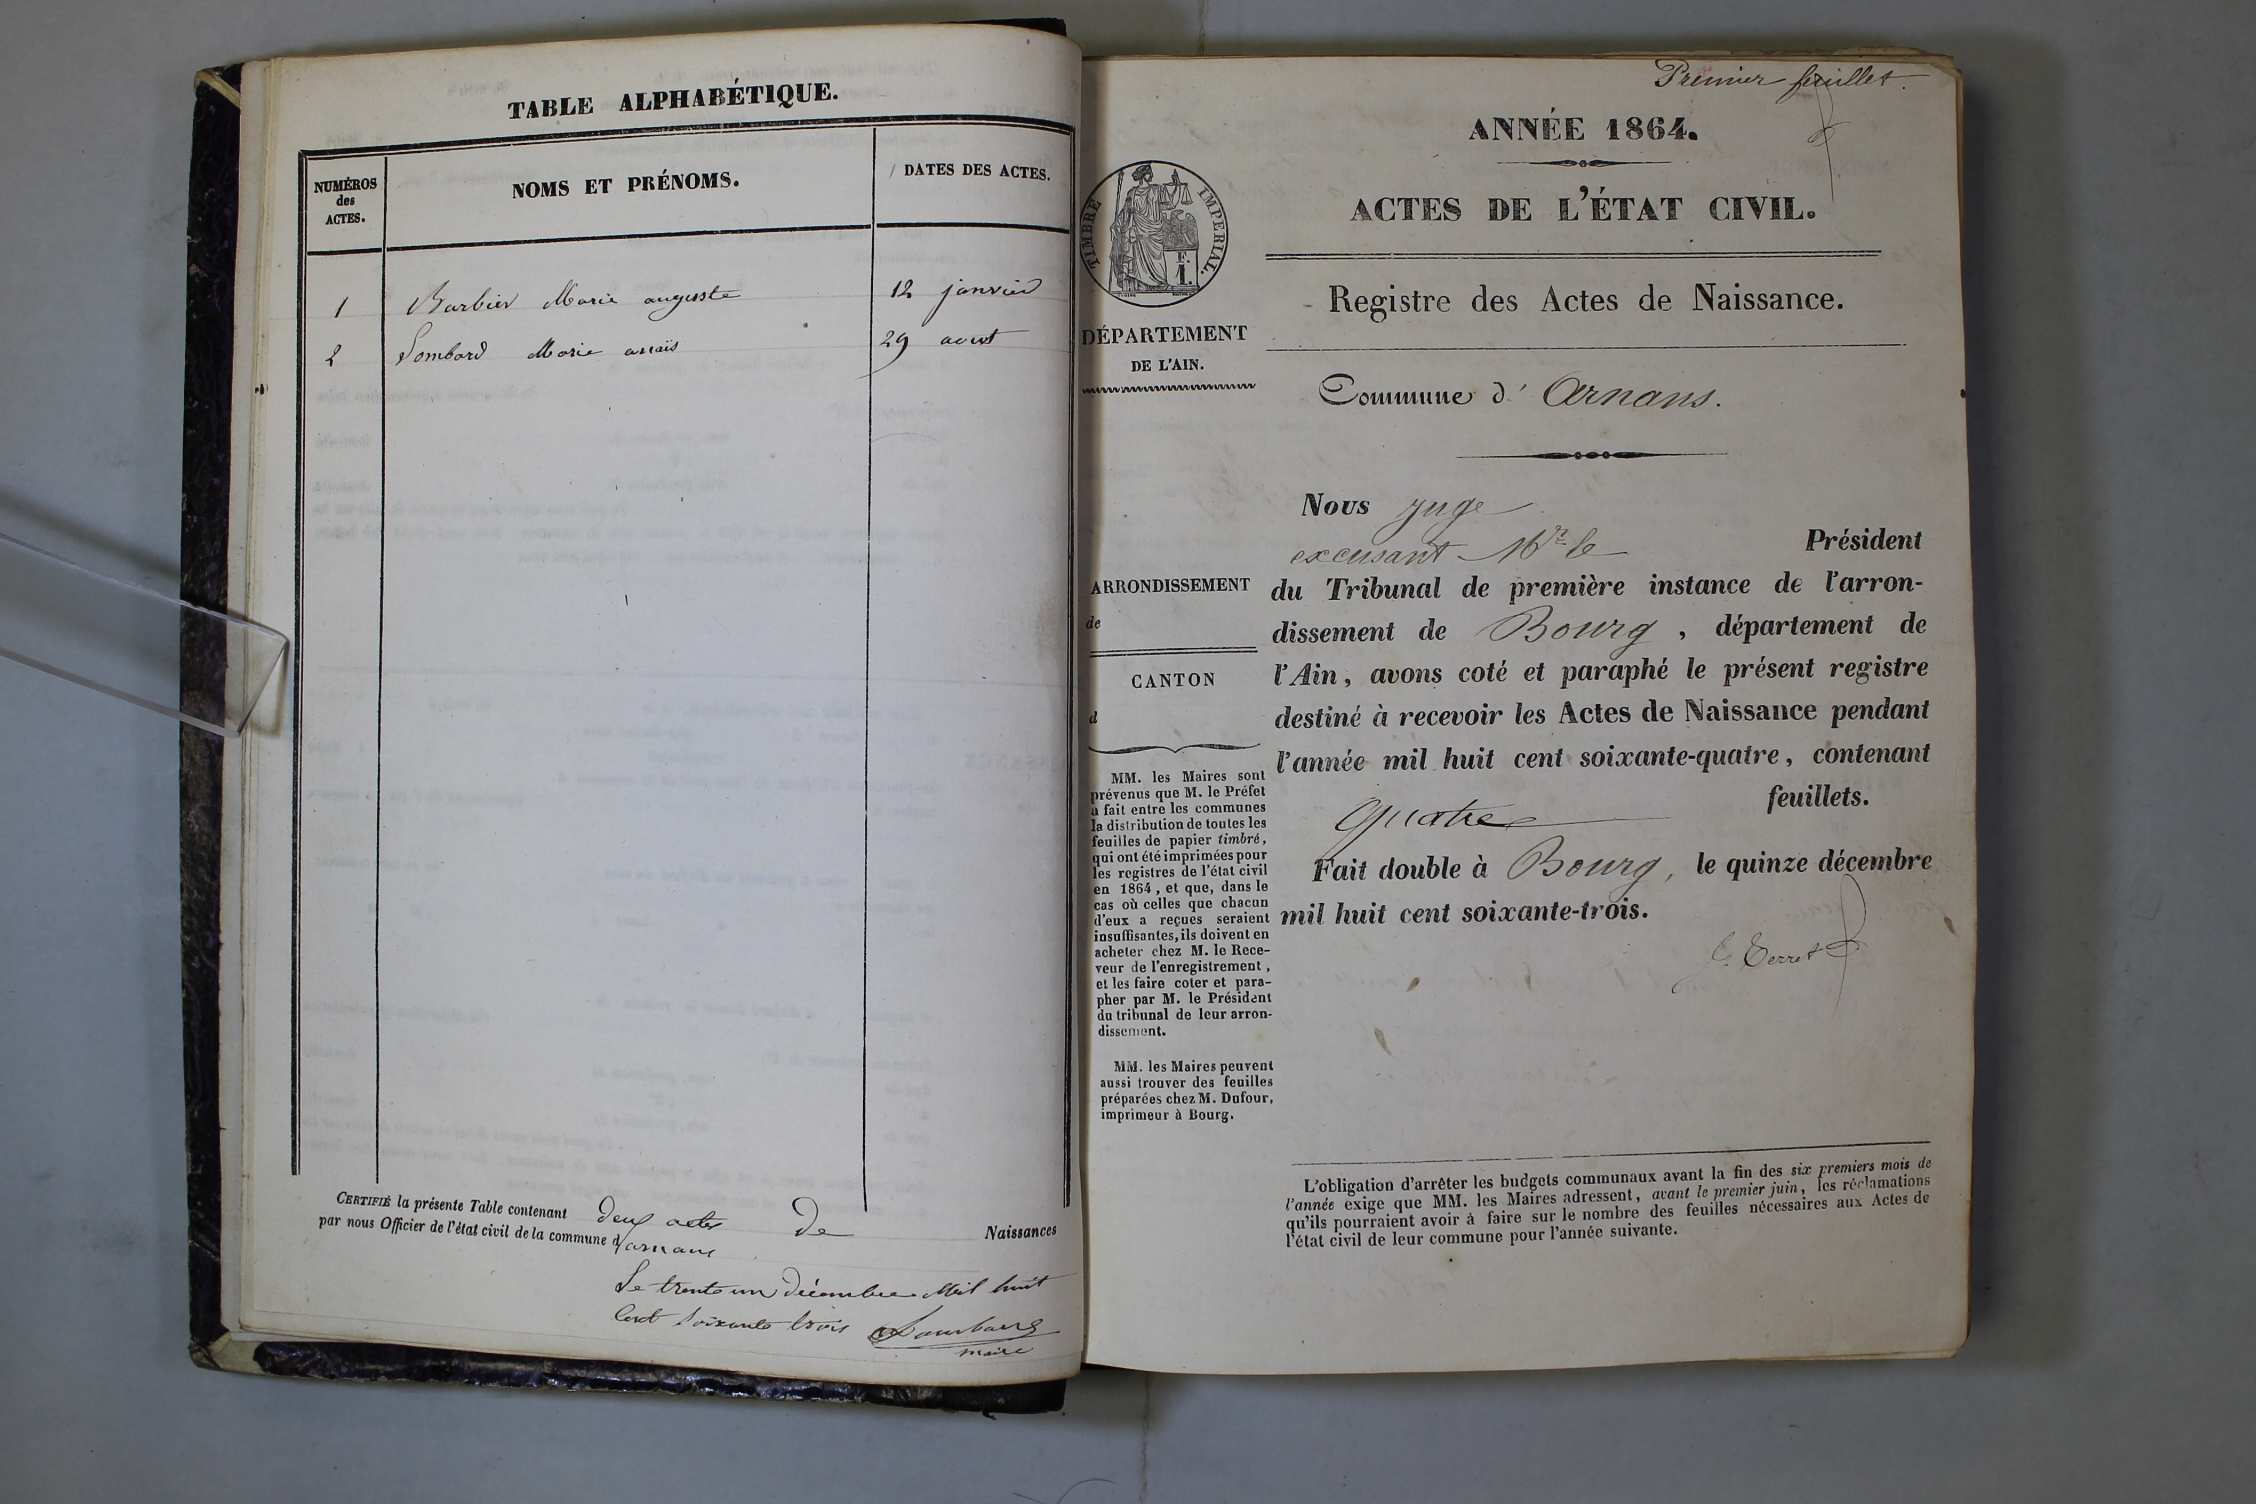 TABLE ALPHABÉTIQUE.
NUMÉROS
des
ACTES.
NOMS ET PRÉNOMS.
DATES DES ACTES.
1 Barbier Marie auguste 12 janvier
2 Lombard Marie anaïs 29 aout
CERTIFIÉ la présente Table contenant deux actes de Naissances
par nous Officier de l'état civil de la commune d'arnans
Le trente un décembre Mil huit
Cent soixante trois Lombard
maire
Premier feuillet.
ANNÉE 1864.
ACTES DE L'ÉTAT CIVIL.
Registre des Actes de Naissance.
TIMBRE IMPERIAL.
F.
1.
DÉPARTEMENT
DE L'AIN.
Commune d'Arnans.
Nous juge
excusant Mr le Président
du Tribunal de première instance de l'arron-
dissement de Bourg, département de
l'Ain, avons coté et paraphé le présent registre
destiné à recevoir les Actes de Naissance pendant
l'année mil huit cent soixante-quatre, contenant
quatre feuillets.
Fait double à Bourg, le quinze décembre
mil huit cent soixante-trois.
Terret
ARRONDISSEMENT
de
CANTON
d
MM. les Maires sont
prévenus que M. le Préfet
a fait entre les communes
la distribution de toutes les
feuilles de papier timbré,
qui ont été imprimées pour
les registres de l'état civil
en 1864, et que, dans le
cas où celles que chacun
d'eux a reçues seraient
insuffisantes, ils doivent en
acheter chez M. le Rece-
veur de l'enregistrement,
et les faire coter et para-
pher par M. le Président
du tribunal de leur arron-
dissement.
MM. les Maires peuvent
aussi trouver des feuilles
préparées chez M. Dufour,
imprimeur à Bourg.
L'obligation d'arrêter les budgets communaux avant la fin des six premiers mois de
l'année exige que MM. les Maires adressent, avant le premier juin, les réclamations
qu'ils pourraient avoir à faire sur le nombre des feuilles nécessaires aux Actes de
l'état civil de leur commune pour l'année suivante.